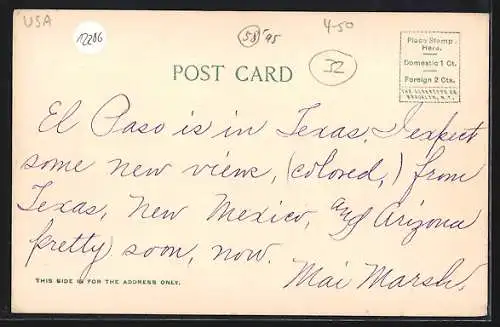 USA
12286
58/95
4-50
32
POST CARD
Place Stamp
Here.
Domestic 1 Ct.
Foreign 2 Cts.
THE ALBERTYPE CO.
BROOKLYN, N.Y.
El Paso is in Texas. I expect
some new views, (colored,) from
Texas, New Mexico, and Arizona
pretty soon, now.
THIS SIDE IS FOR THE ADDRESS ONLY.
Mai Marsh.